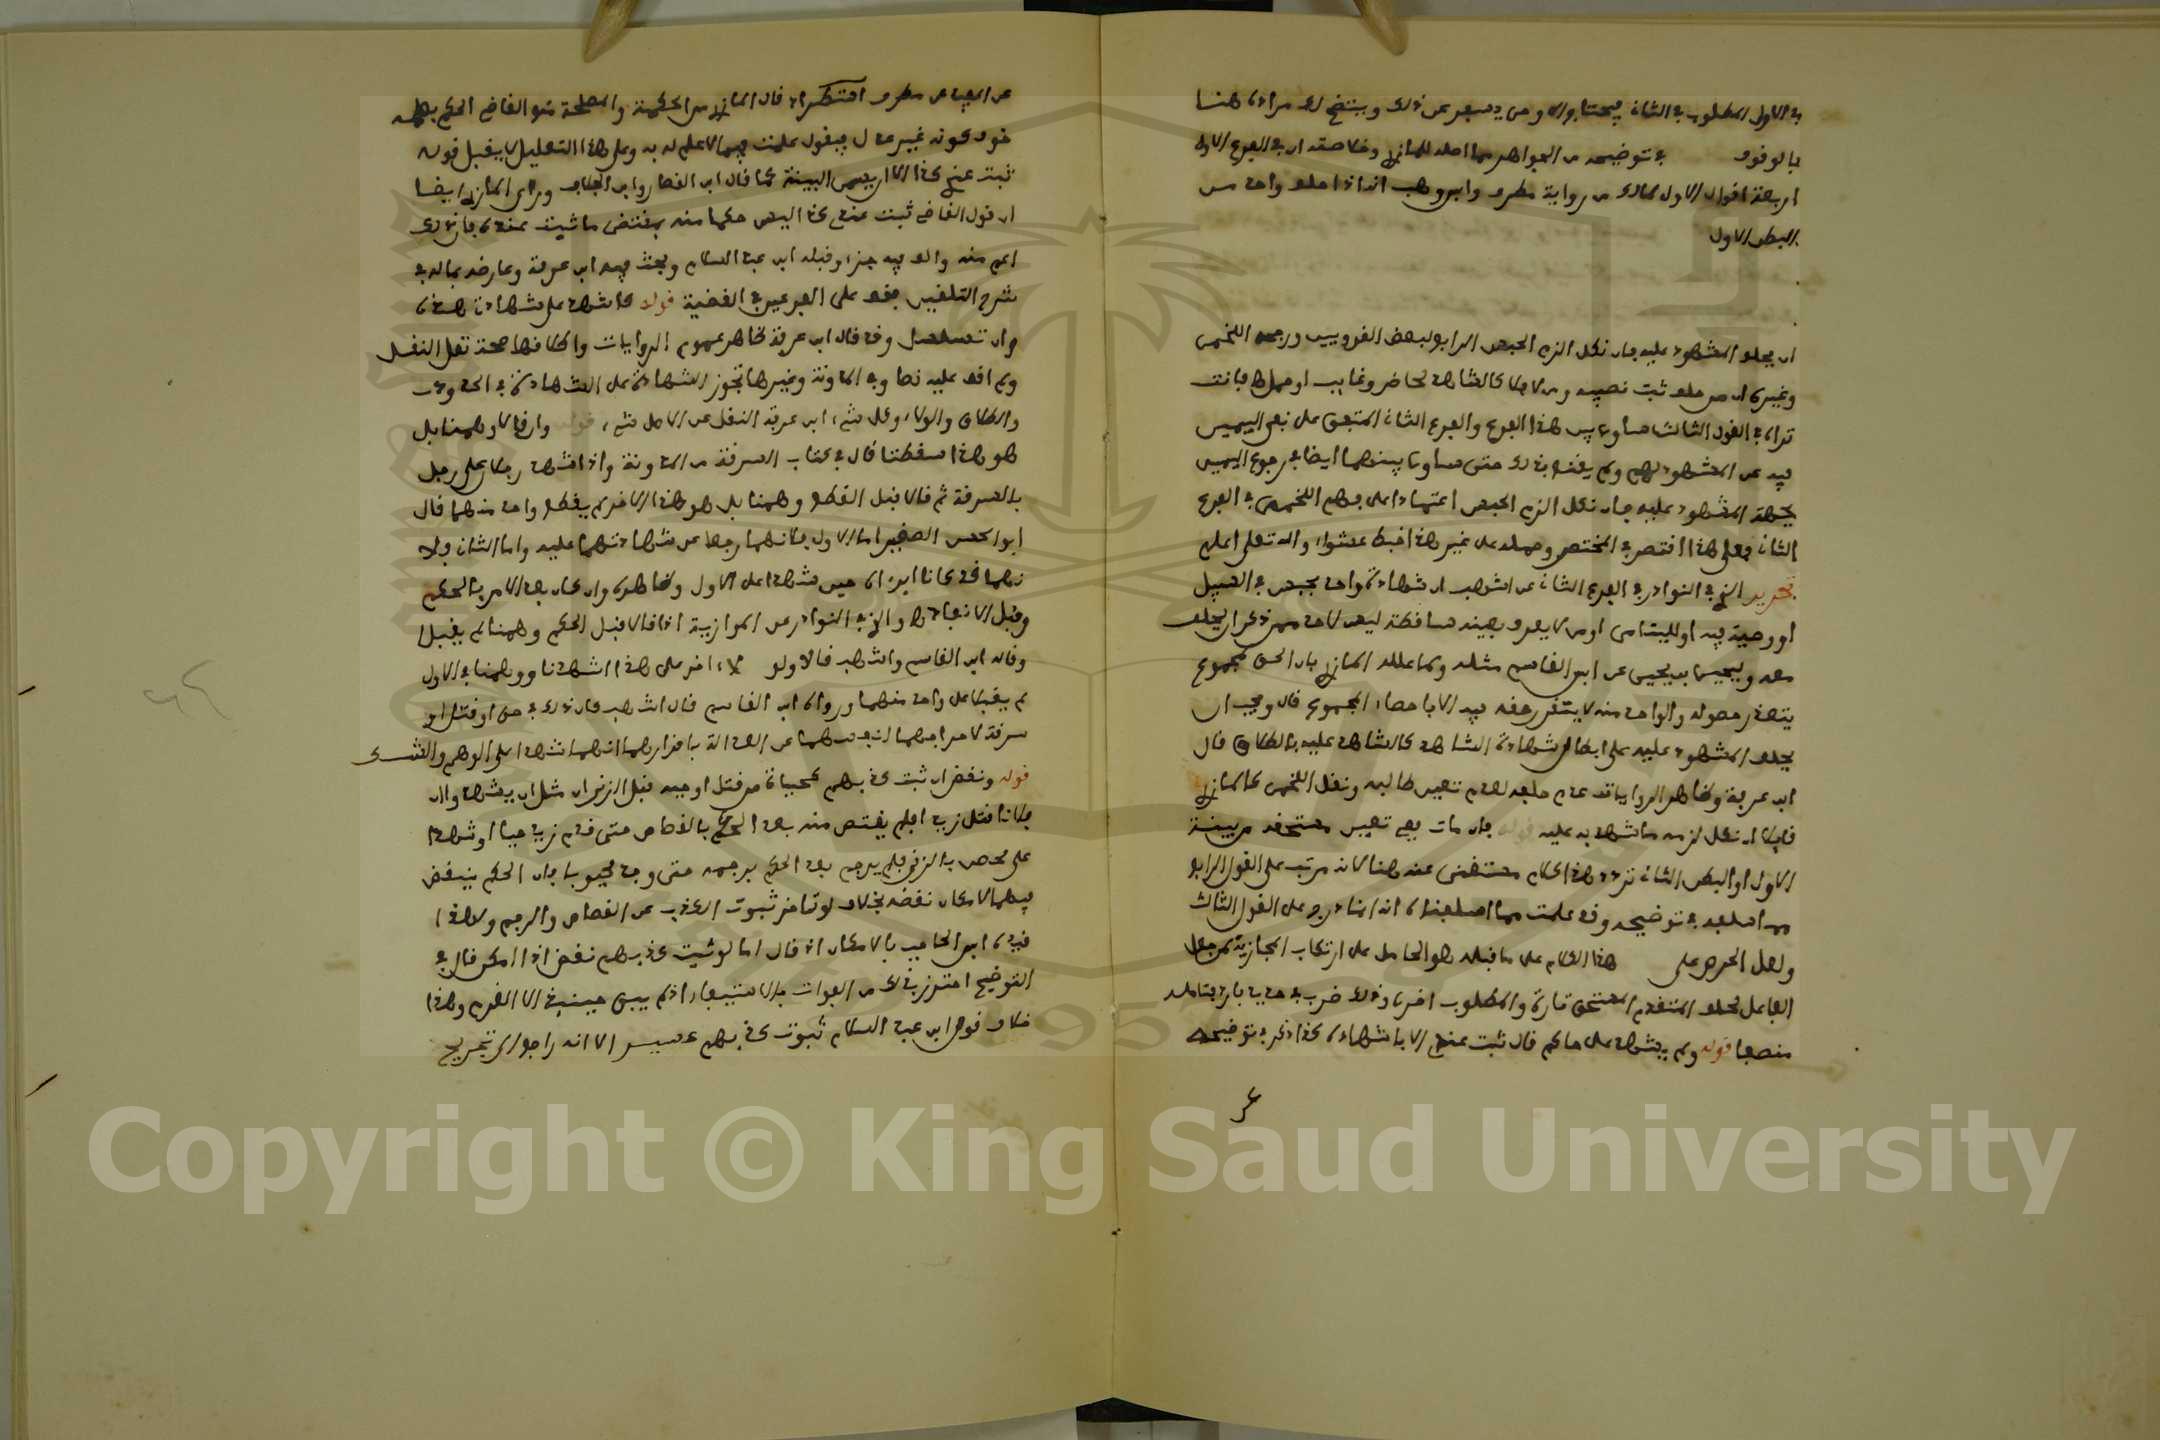 في الاول المطلوب في الثاني فيحتاج الى وحي يسفر عن ذلك ويتضح لك مراده هنا
بالوقوف في توضيحه من الجواهر مما اصله للمازري وخلاصته ان في الفرع الاول
اربعة اقوال الاول لمالك من رواية مطرف وابن وهب انه اذا حلف واحد من
البطن الاول
ان يحلف المشهود عليه فان نكل الزم الحبس الرابع لبعض القرويين ورجحه اللخمي
وغيره ان من حلف ثبت نصيبه ومن لا فلا كالشاهد لحاضر وغايب او حمل فانت
تراه في القول الثالث ساوى بين هذا الفرع والفرع الثاني المتفق على نفي اليمين
فيه عن المشهود لهم ولم يقنع بذلك حتى ساوى بينهما ايضا في رجوع اليمين
لجهة المشهود عليه فان نكل الزم الحبس اعتمادا على فهم اللخمي في الفرع
الثاني فعلى هذا اقتصر في المختصر وحمله على غير هذا خبط عشواء والله تعلى اعلم
تحرير الذي في النوادر في الفرع الثاني عن اشهب ان شهادة واحد بحبس في السبيل
او وصية فيه او لليتامى او من لا يعرف بعينه ساقطة ليس لاحد ممن ذكر ان يحلف
معه وليحيى بن يحيى عن ابن القاسم مثله وكما علله المازري بان الحق لمجموع
يتعذر حصوله والواحد منه لا يتقرر حقه فيه الا باحصاء المجموع قال ويجب ان
يحلف المشهود عليه على ابطال شهادة الشاهد كالشاهد عليه بالطلاق قال
ابن عرفة وظاهر الروايات عدم حلفه لعدم تعين طالبه ونقل اللخمي كالمازري
قايلا ان نكل لزمه ما شهد به عليه قوله فان مات ففي تعيين مستحقه من بقية
الاول او البطن الثاني تردد هذا الكلام مستغنى عنه هنا لانه مرتب على القول الرابع
مما اسلفه في توضيحه وقد علمت مما اسلفناه انه انما درج على القول الثالث
ولعل الحرص على هذا الكلام على ما قبله هو الحامل على ارتكاب المجازية من جعل
الفاعل لحلف المتقدم المستحق تارة والمطلوب اخرى وذلك ضرب في حديد بارد فتامله
منصفا قوله ولم يشهد على حاكم قال ثبت عندي الا باشهاده كذا ذكر في توضيحه
عن
عن الفقيه عن مطرف قال المازري من الحكمة والمصلحة منع القاضي الحكم بعلمه
خوف كونه غير عدل فيقول علمت فيما لا علم له به وعلى هذا التعليل لا يقبل قوله
ثبت عندي كذا الا ان يسمي البينة كما قال ابن القصار وابن الجلاب وراى المازري ايضا
ان قول القاضي ثبت عندي كذا ليس حكما منه بمقتضى ما ثبت عنده فان ذلك
اعم منه والف فيه جزءا وقبله ابن عبد السلام وبحث فيه ابن عرفة وعارضه بما له في
شرح التلقين فقف على الفرعين في القضية قوله كاشهد على شهادتي هذه
وان تسلسل وقد قال ابن عرفة ظاهر عموم الروايات واطلاقها صحة نقل النقل
ولم اقف عليه نصا وفي المدونة وغيرها تجوز الشهادة على الشهادة في الحدود
والطلاق والولاء وكل شيء ابن عرفة النقل عن الاصل شيء قوله وان قالا وهمنا بل
هو هذا سقطتا قال في كتاب السرقة من المدونة واذا شهد رجلان على رجل
بالسرقة ثم قالا قبل القطع وهمنا بل هو هذا الاخر لم يقطع واحد منهما قال
ابو الحسن الصغير اما الاول فلانهما رجعا عن شهادتهما عليه واما الثاني فلا
نهما قد كانا ابرءاه حين شهدا على الاول وظاهره وان كان بعد الامر بالحكم
وقبل الانفاذ والذي في النوادر عن الموازية اذا قالا قبل الحكم وهمنا لم يقبلا
وقاله ابن القاسم واشهب قالا ولو اخر على هذا اشهدنا ووهمنا في الاول
لم يقبلا على واحد منهما ورواه ابن القاسم قال اشهب كان ذلك في حق او قتل او
سرقة لاخراجهما انفسهما عن العدالة باقرارهما انهما شهدا على الوهم والشك
قوله ونقض ان ثبت كذبهم كحياة من قتل او جبه قبل الزنى ان مثل ان يشهدوا ان
فلانا قتل زيدا فلم يقتص منه بعد الحكم بالقصاص حتى قدم زيد حيا او شهدا
على محصن بالزنى فلم يرجم بعد الحكم برجمه حتى وجد مجبوبا فان الحكم ينقض
فيهما لامكان نقضه بخلاف لو تاخر ثبوت الكذب عن القصاص والرجم ولهذا
قيده ابن الحاجب بالامكان اذ قال اما لو ثبت كذبهم نقض اذا امكن قال في
التوضيح احترز بذلك من الفوات بالاستيفاء اذ لم يبق حينئذ الا الغرم وهذا
خلاف قول ابن عبد السلام ثبوت كذبهم عسير الا انه راجع الى تجريح